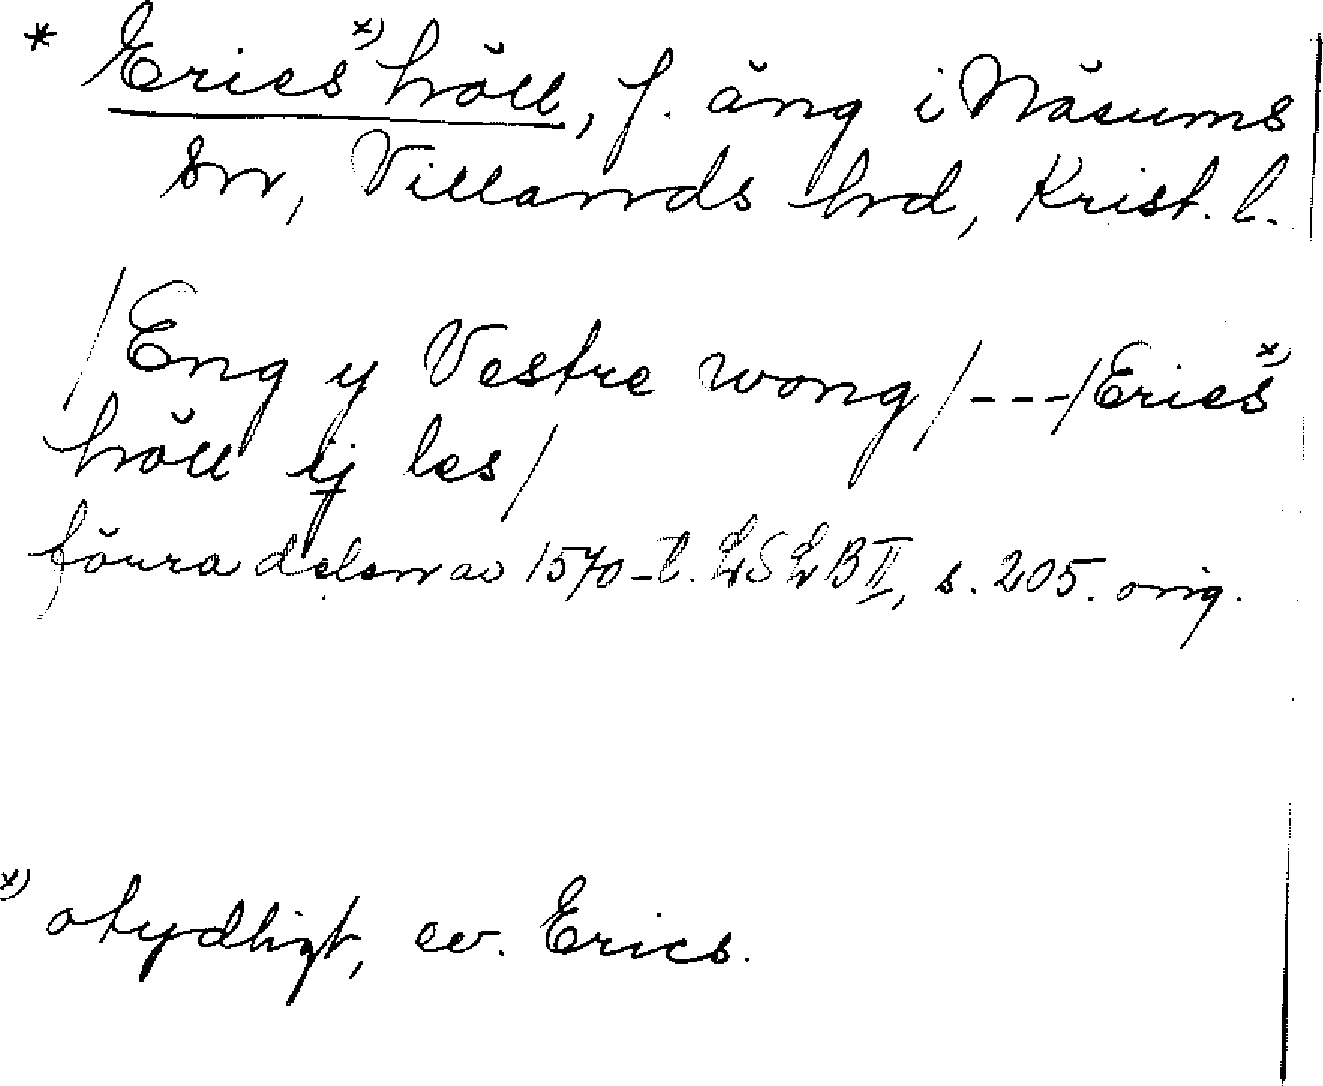 * Eries ˣ⁾ höll, f. äng i Näsums
sn, Villands hrd, Krist. l.
/Eng y Vestre wong/---/Eries ˣ⁾
höll ij les/
förra delen av 1570-t. LSLB II, s. 205. orig.
ˣ⁾ otydligt, ev. Erics.